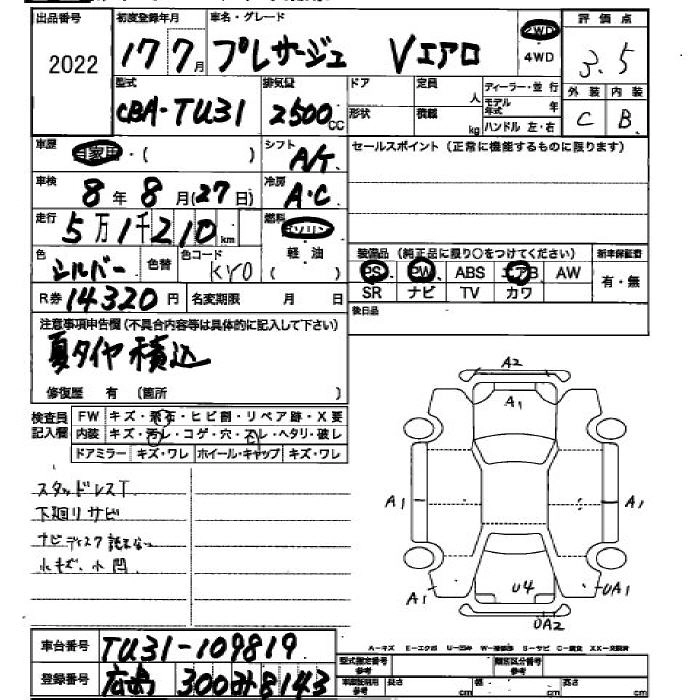 出品番号 初度登録年月 車名・グレード 評価点
2022 17 7月 プレサージュ Vエアロ 2WD 4WD 3.5
型式 排気量 ドア 定員 人 ディーラー・並行 外装 内装
CBA-TU31 2500cc 形状 積載 kg モデル年式 年 C B
ハンドル 左・右
車歴 自家用・( ) シフト A/T セールスポイント (正常に機能するものに限ります)
車検 8年8月(27日) 冷房 A・C
走行 5万1千210km 燃料 ガソリン
軽・油 ( )
装備品 (純正品に限り○をつけてください) 新車保証書
PS PW ABS エアB AW 有・無
SR ナビ TV カワ
色 シルバー 色替 色コード KY0
後日品
R券 14320円 名変期限 月 日
注意事項申告欄(不具合内容等は具体的に記入して下さい)
夏タイヤ積込
修復歴 有 (箇所 )
検査員記入欄 FW キズ・飛石・ヒビ割・リペア跡・X要
内装 キズ・汚レ・コゲ・穴・スレ・ヘタリ・破レ
ドアミラー キズ・ワレ ホイール・キャップ キズ・ワレ
スタッドレスT
下廻リサビ
ナビディスク読まない
小キズ、小凹
A2
A1
A1
A1
A1
U4
UA1
UA2
A-キズ E-エクボ U-凹み S-サビ C-腐食
車台番号 TU31-109819
型式指定番号 参考 類別区分番号 参考
登録番号 広島 300 み 8143
車庫証明用 参考 長さ cm 幅 cm 高さ cm